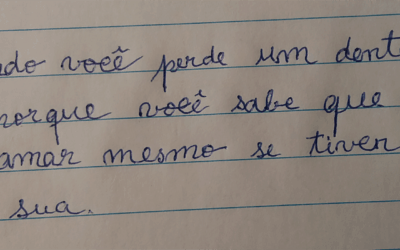 ndo você perde um dent
porque você sabe que
amar mesmo se tiver
sua.